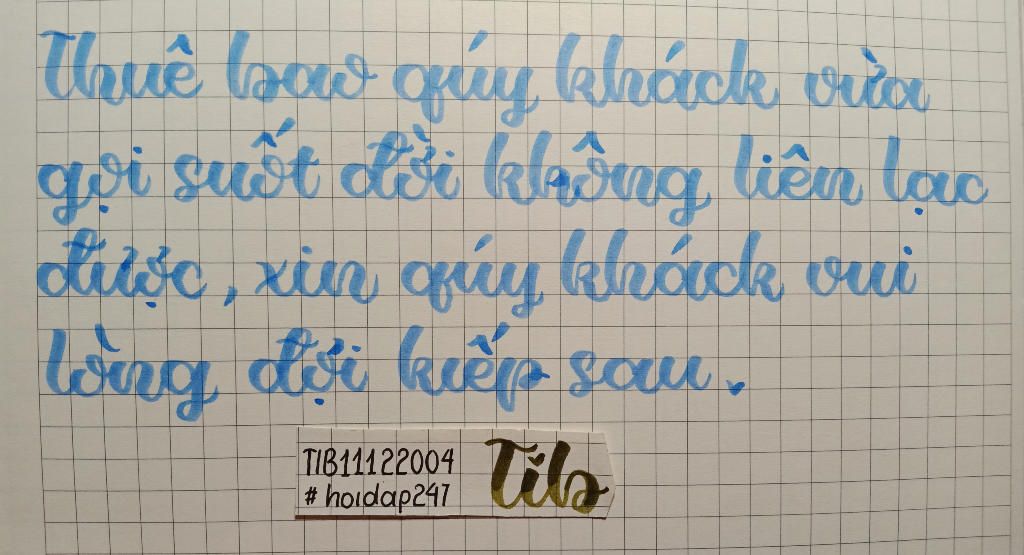 Thuê bao qúy kháck vừa
gọi suốt đời không liên lạc
được, xin qúy kháck vui
lòng đợi kiếp sau.
TIB11122004
#hoidap247
Tib